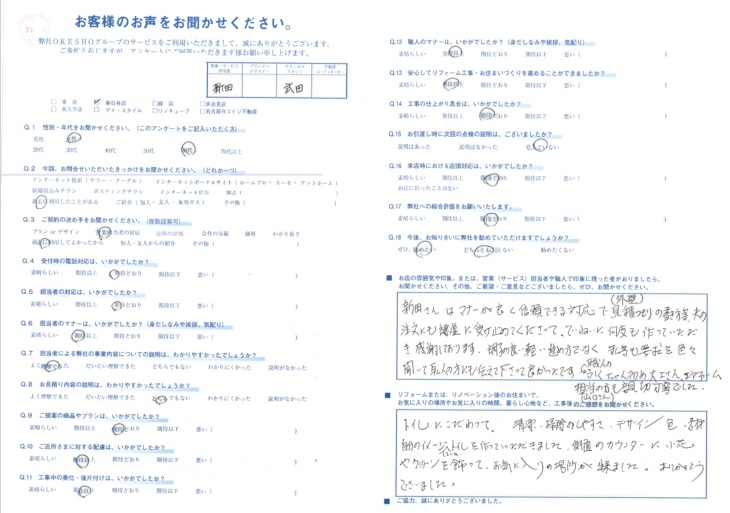 お客様のお声をお聞かせください。
弊社OKESHOグループのサービスをご利用いただきまして、誠にありがとうございます。
新田 武田
東店 春日井店 緑店
長久手店 アイ・スタイル リノキューブ 名古屋Rエイジ不動産
Q.1 性別・年代をお聞かせください。(このアンケートをご記入いただく方)
男性 女性
20代 30代 40代 50代 60代 70代以上
Q.2 今回、お問合せいただいたきっかけをお聞かせください。(どれか一つ)
インターネット検索(ヤフー・グーグル) インターネットポータルサイト(ホームプロ・スーモ・アットホーム)
新聞折込みチラシ ポスティングチラシ インターネット広告 雑誌( )
過去に利用したことがある ご紹介(知人・友人・東邦ガス) その他( )
Q.3 ご契約の決め手をお聞かせください。(複数回答可)
プラン or デザイン 営業担当者の対応 近所の評判 会社の実績 価格 わかり易さ
過去に利用してよかったから 知人・友人からの紹介 その他( )
Q.4 受付時の電話対応は、いかがでしたか?
素晴らしい 期待以上 期待どおり 期待以下 悪い( )
Q.5 担当者の対応は、いかがでしたか?
素晴らしい 期待以上 期待どおり 期待以下 悪い( )
Q.6 担当者のマナーは、いかがでしたか?(身だしなみや挨拶、気配り)
素晴らしい 期待以上 期待どおり 期待以下 悪い( )
Q.7 担当者による弊社の事業内容についての説明は、わかりやすかったでしょうか?
よく理解できた だいたい理解できた どちらでもない わかりにくかった 説明がなかった
Q.8 お見積り内容の説明は、わかりやすかったでしょうか?
よく理解できた だいたい理解できた どちらでもない わかりにくかった 説明がなかった
Q.9 ご提案の商品やプランは、いかがでしたか?
素晴らしい 期待以上 期待どおり 期待以下 悪い( )
Q.10 ご近所さまに対する配慮は、いかがでしたか?
素晴らしい 期待以上 期待どおり 期待以下 悪い( )
Q.11 工事中の美化・後片付けは、いかがでしたか?
素晴らしい 期待以上 期待どおり 期待以下 悪い( )
Q.12 職人のマナーは、いかがでしたか?(身だしなみや挨拶、気配り)
素晴らしい 期待以上 期待どおり 期待以下 悪い( )
Q.13 安心してリフォーム工事・お住まいづくりを進めることができましたか?
素晴らしい 期待以上 期待どおり 期待以下 悪い( )
Q.14 工事の仕上がり具合は、いかがでしたか?
素晴らしい 期待以上 期待どおり 期待以下 悪い( )
Q.15 お引渡し時に次回の点検の説明は、ございましたか?
説明はあった 説明はなかった 覚えていない
Q.16 来店時における店頭対応は、いかがでしたか?
素晴らしい 期待以上 期待どおり 期待以下 悪い( )
お店に行ったことはない
Q.17 弊社への総合評価をお願いいたします。
素晴らしい 期待以上 期待どおり 期待以下 悪い( )
Q.18 今後、お知り合いに弊社を勧めていただけますでしょうか?
ぜひ、勧めたい どちらともいえない 勧めたくない
■ お店の雰囲気や印象、または、営業(サービス)担当者や職人で印象に残った者がおりましたら、
お聞かせください。その他、ご要望・ご意見などございましたら、ぜひ、お聞かせください。
(外壁)
新田さんはマナーが良く信頼できる対応で見積もりの
注文にも誠実に受け止めてくださって、ていねいに何度も作っていただ
き感謝しております。
■ リフォームまたは、リノベーション後のお住まいで、
お気に入りの場所やお気に入りの時間、暮らし心地など、工事後のご感想をお聞かせください。
トイレにこだわって、清潔・掃除のしやすさ・デザイン・色・素材
自分のイメージでトイレを作っていただきました。側面のカウンターに小花
やグリーンを飾って、お気に入りの場所が出来ました。ありがとう
ございました。
■ ご協力、誠にありがとうございました。